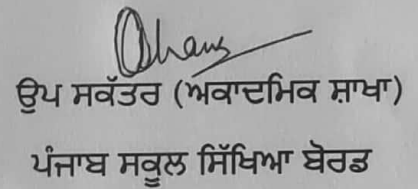 ਉਪ ਸਕੱਤਰ (ਅਕਾਦਮਿਕ ਸ਼ਾਖਾ)
ਪੰਜਾਬ ਸਕੂਲ ਸਿੱਖਿਆ ਬੋਰਡ